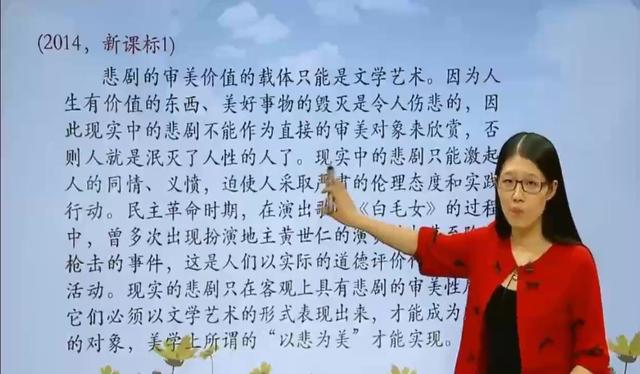 (2014，新课标1)
悲剧的审美价值的载体只能是文学艺术。因为人
生有价值的东西、美好事物的毁灭是令人伤悲的，因
此现实中的悲剧不能作为直接的审美对象来欣赏，否
则人就是泯灭了人性的人了。现实中的悲剧只能激起
人的同情、义愤，迫使人采取严肃的伦理态度和实践
行动。民主革命时期，在演出歌 《白毛女》的过程
中，曾多次出现扮演地主黄世仁的演
枪击的事件，这是人们以实际的道德评价
活动。现实的悲剧只在客观上具有悲剧的审美性
它们必须以文学艺术的形式表现出来，才能成为
的对象，美学上所谓的“以悲为美”才能实现。